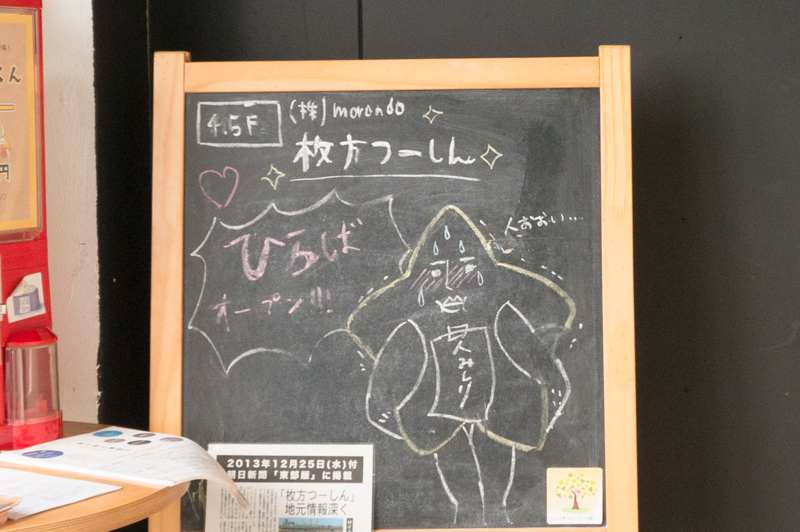 4.5F
(株)morondo
枚方つーしん
ひらば
オープン!!!
人おおい…
人みしり
2013年12月25日(水)付
朝日新聞「東部版」に掲載
「枚方つーしん」
地元情報深く
くん
円